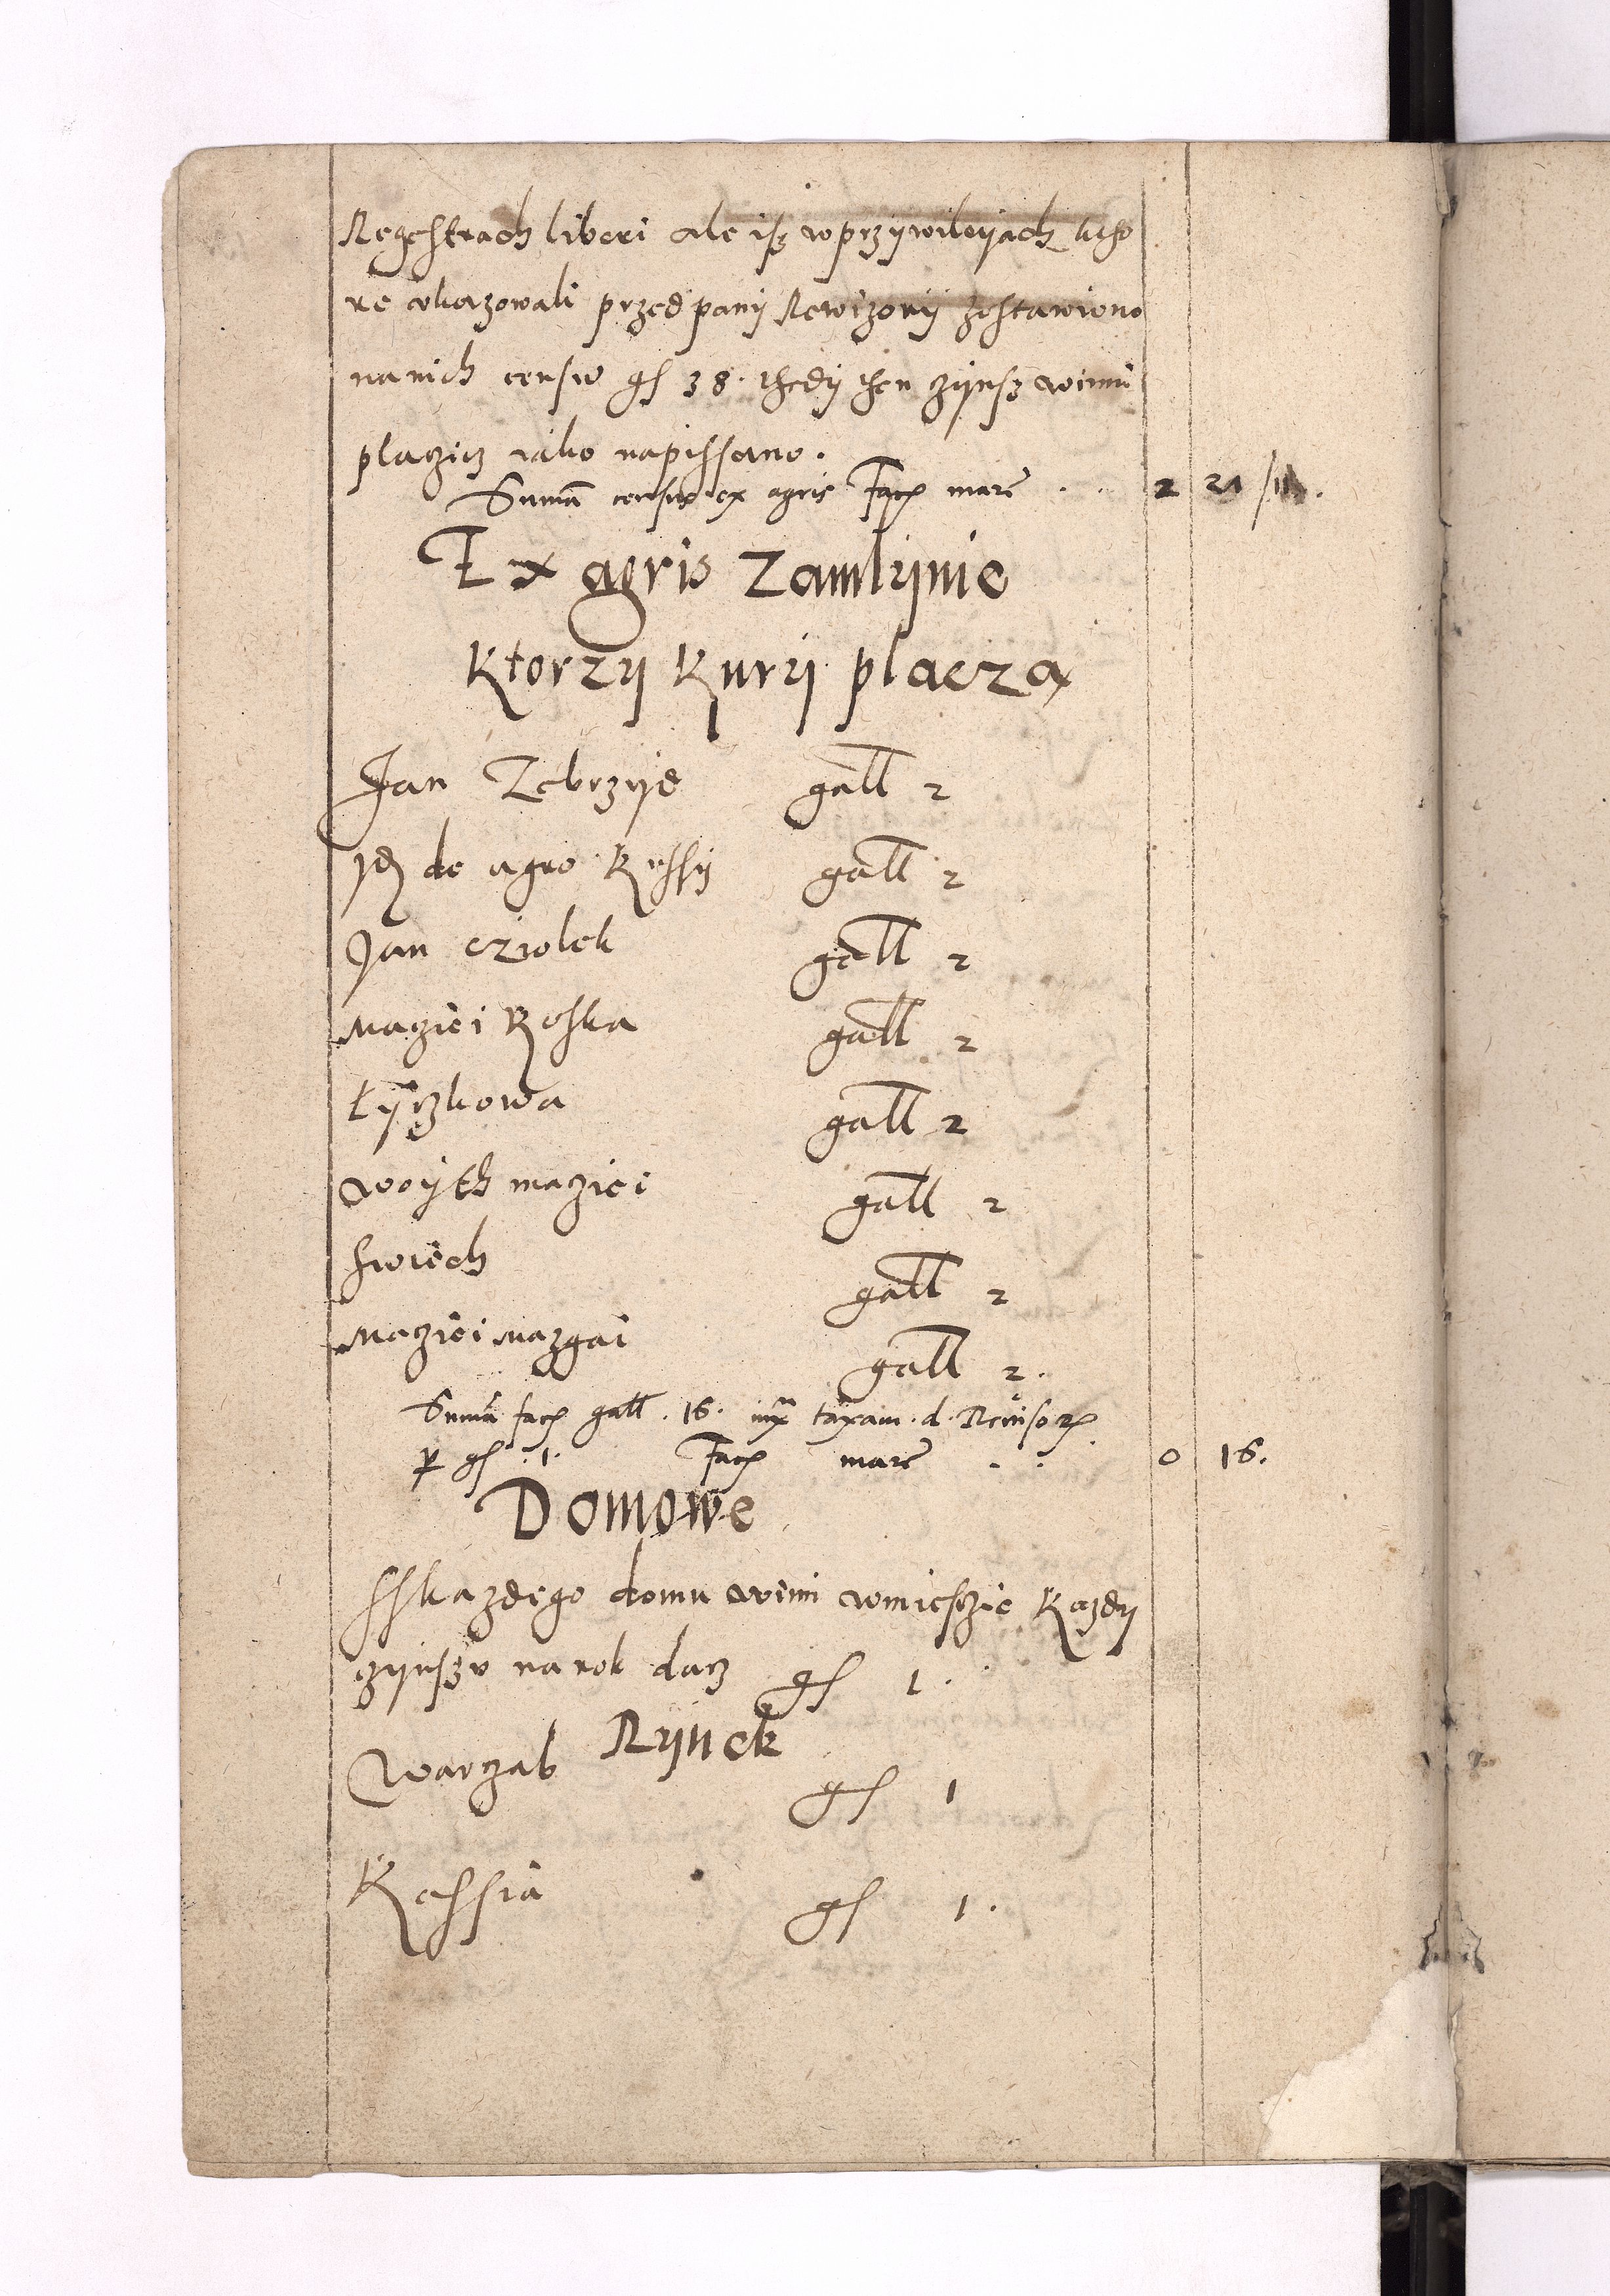 Regestrach liberi ale isz w przywileyach ktho
re ukazowali przed pany Rewizory zostawiono
na nich censw gſ 38. thedy then czynsz winni
placzicz iako napissano.
Suma census ex agris Facᷓ marc̃ . . 2 21/
Ex agris Zamlynie
Ktorzy Kury placza
Jan Zebrzyd gall 2
Idᷓ de agro Kessy gall 2
Jan cziolek gall 2
Macziei Koska gall 2
Łyczkowa gall 2
Woyth macziei gall 2
Swiech gall 2
Macziei Mazgai gall 2.
Suma facᷓ gall. 16. iux taxam. d. Reuisoꝝ
p gſ. 1. Facᷓ marc̃ . . 0 16.
Domowe
Sskazdego domu winni wmiesczie Kazdy
czynszu na rok dacz gſ 1.
Rynek
Warczab gſ 1
Kessia gſ 1.